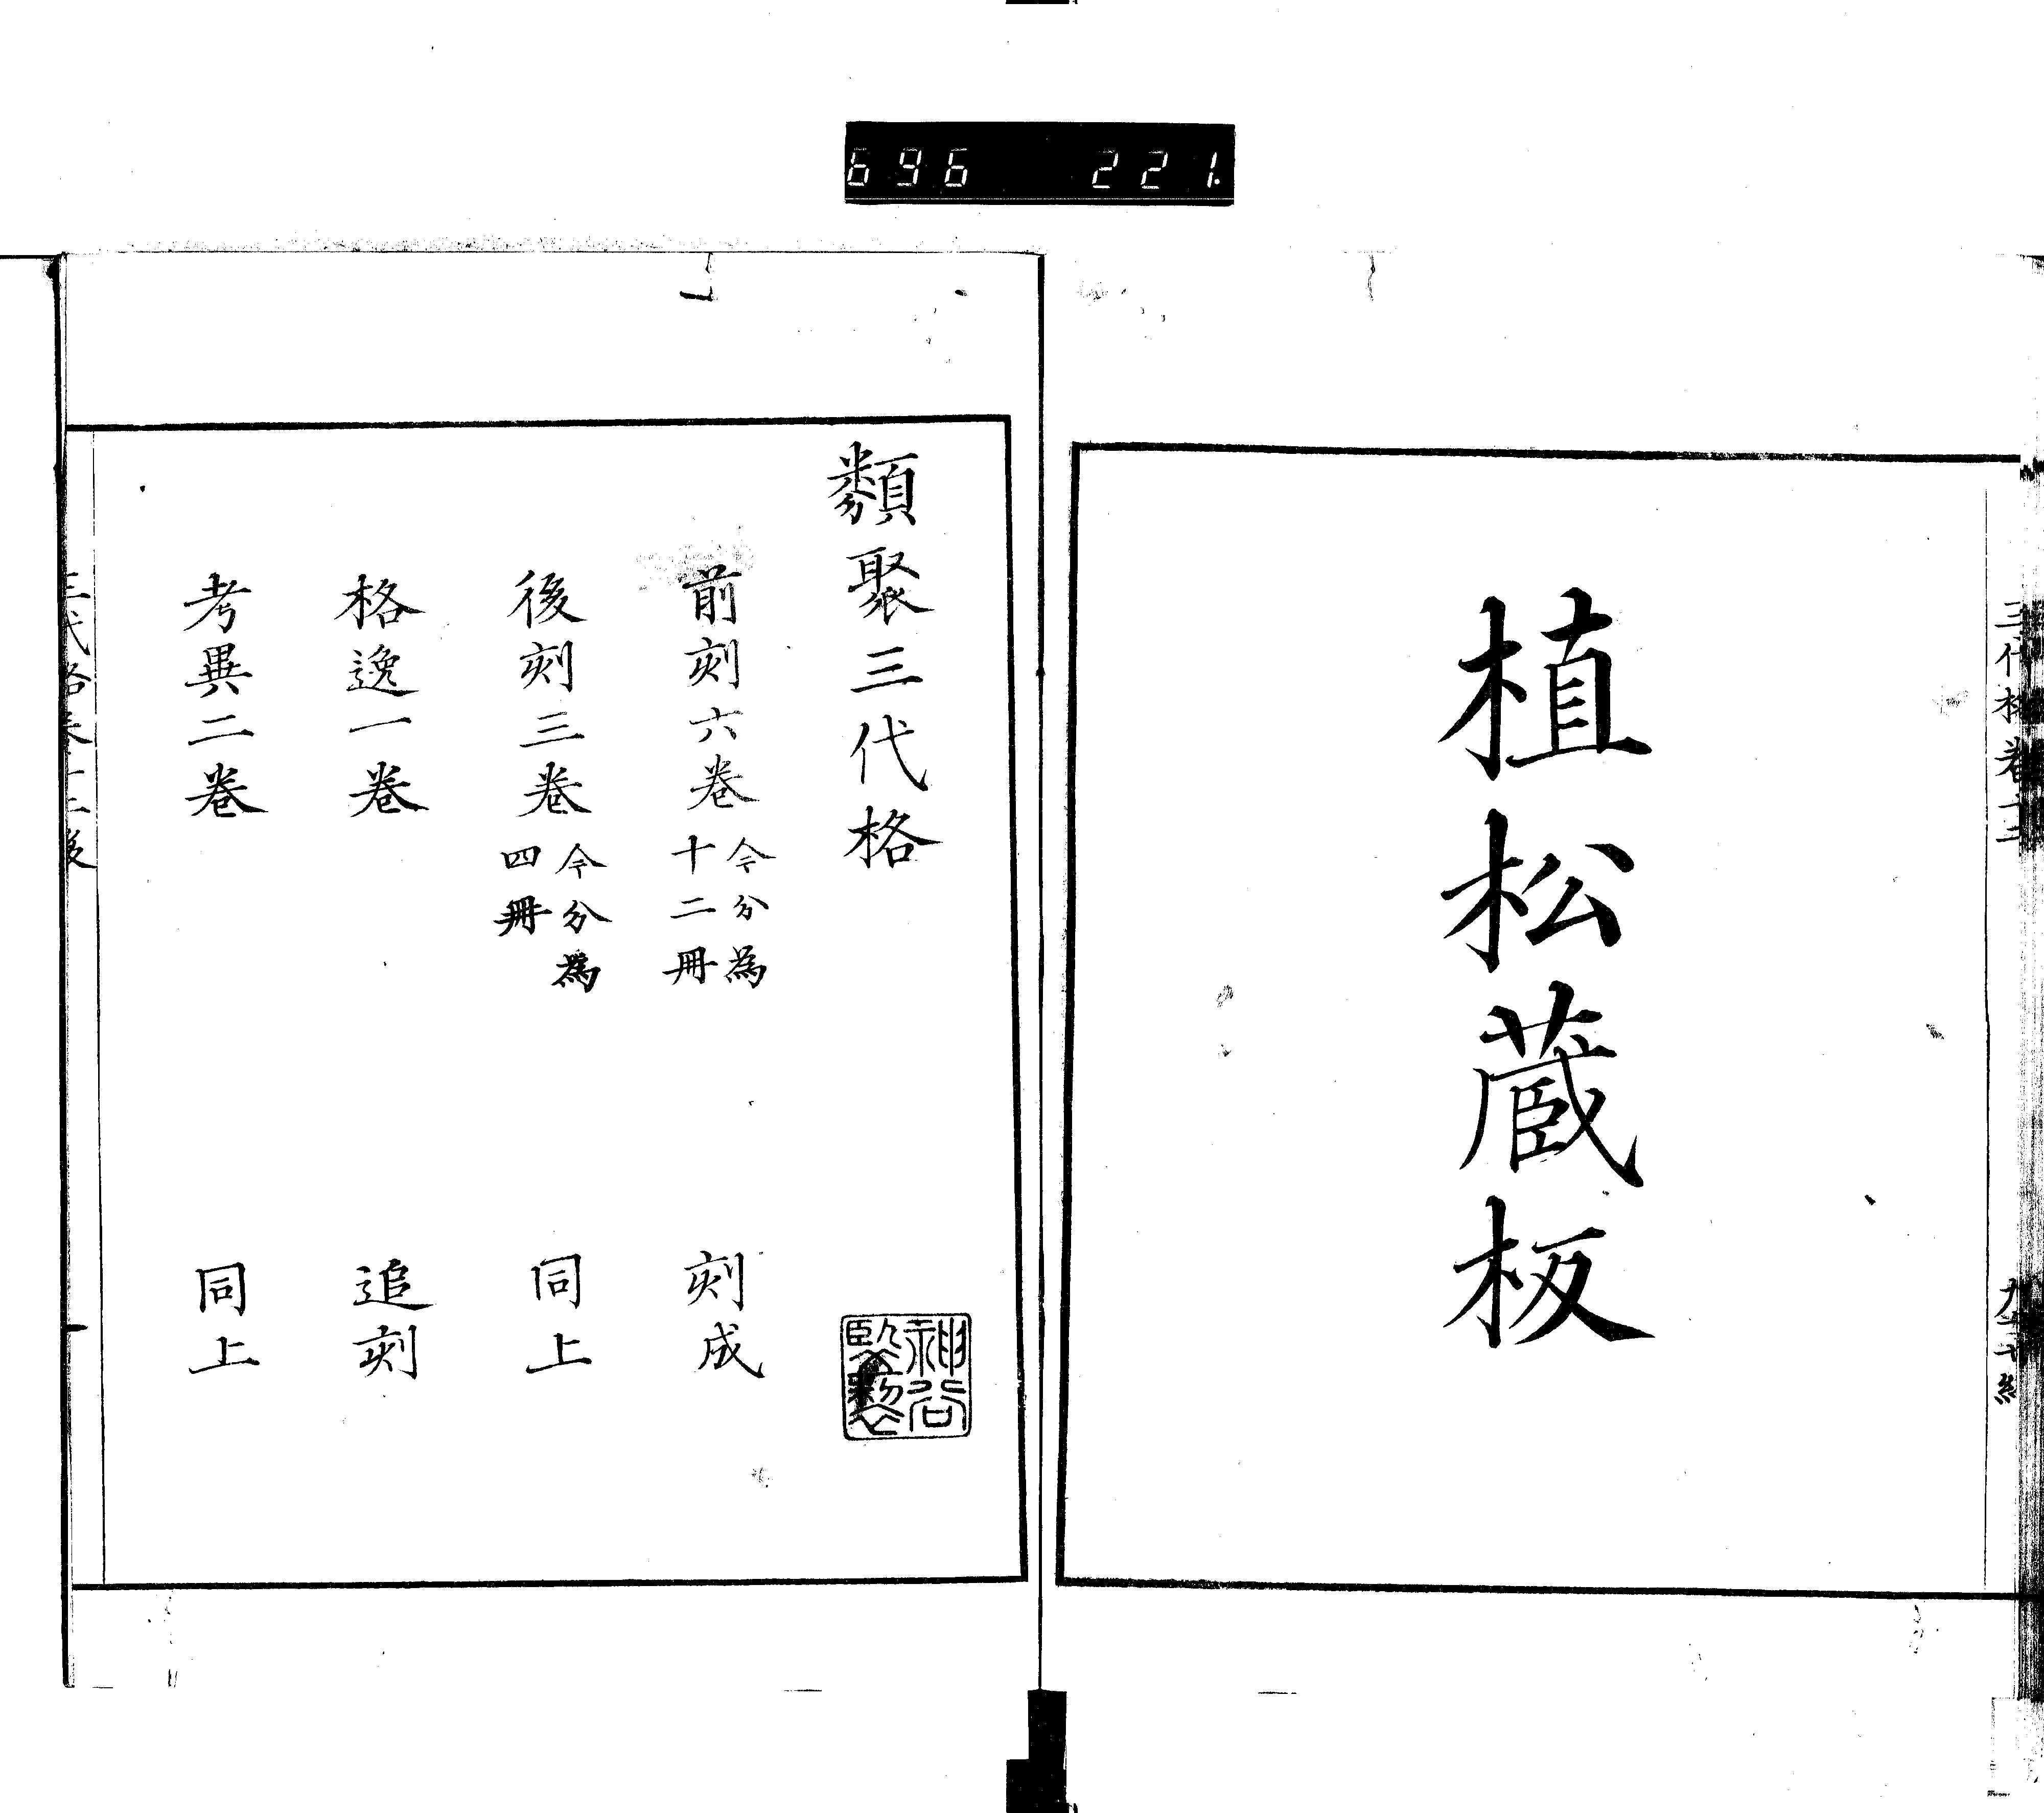 696 221.
三代格卷十二
植松蔵板
類聚三代格
前刻六卷 今分為十二冊 刻成
後刻三卷 今分為四冊 同上
格逸一卷 追刻
考異二卷 同上